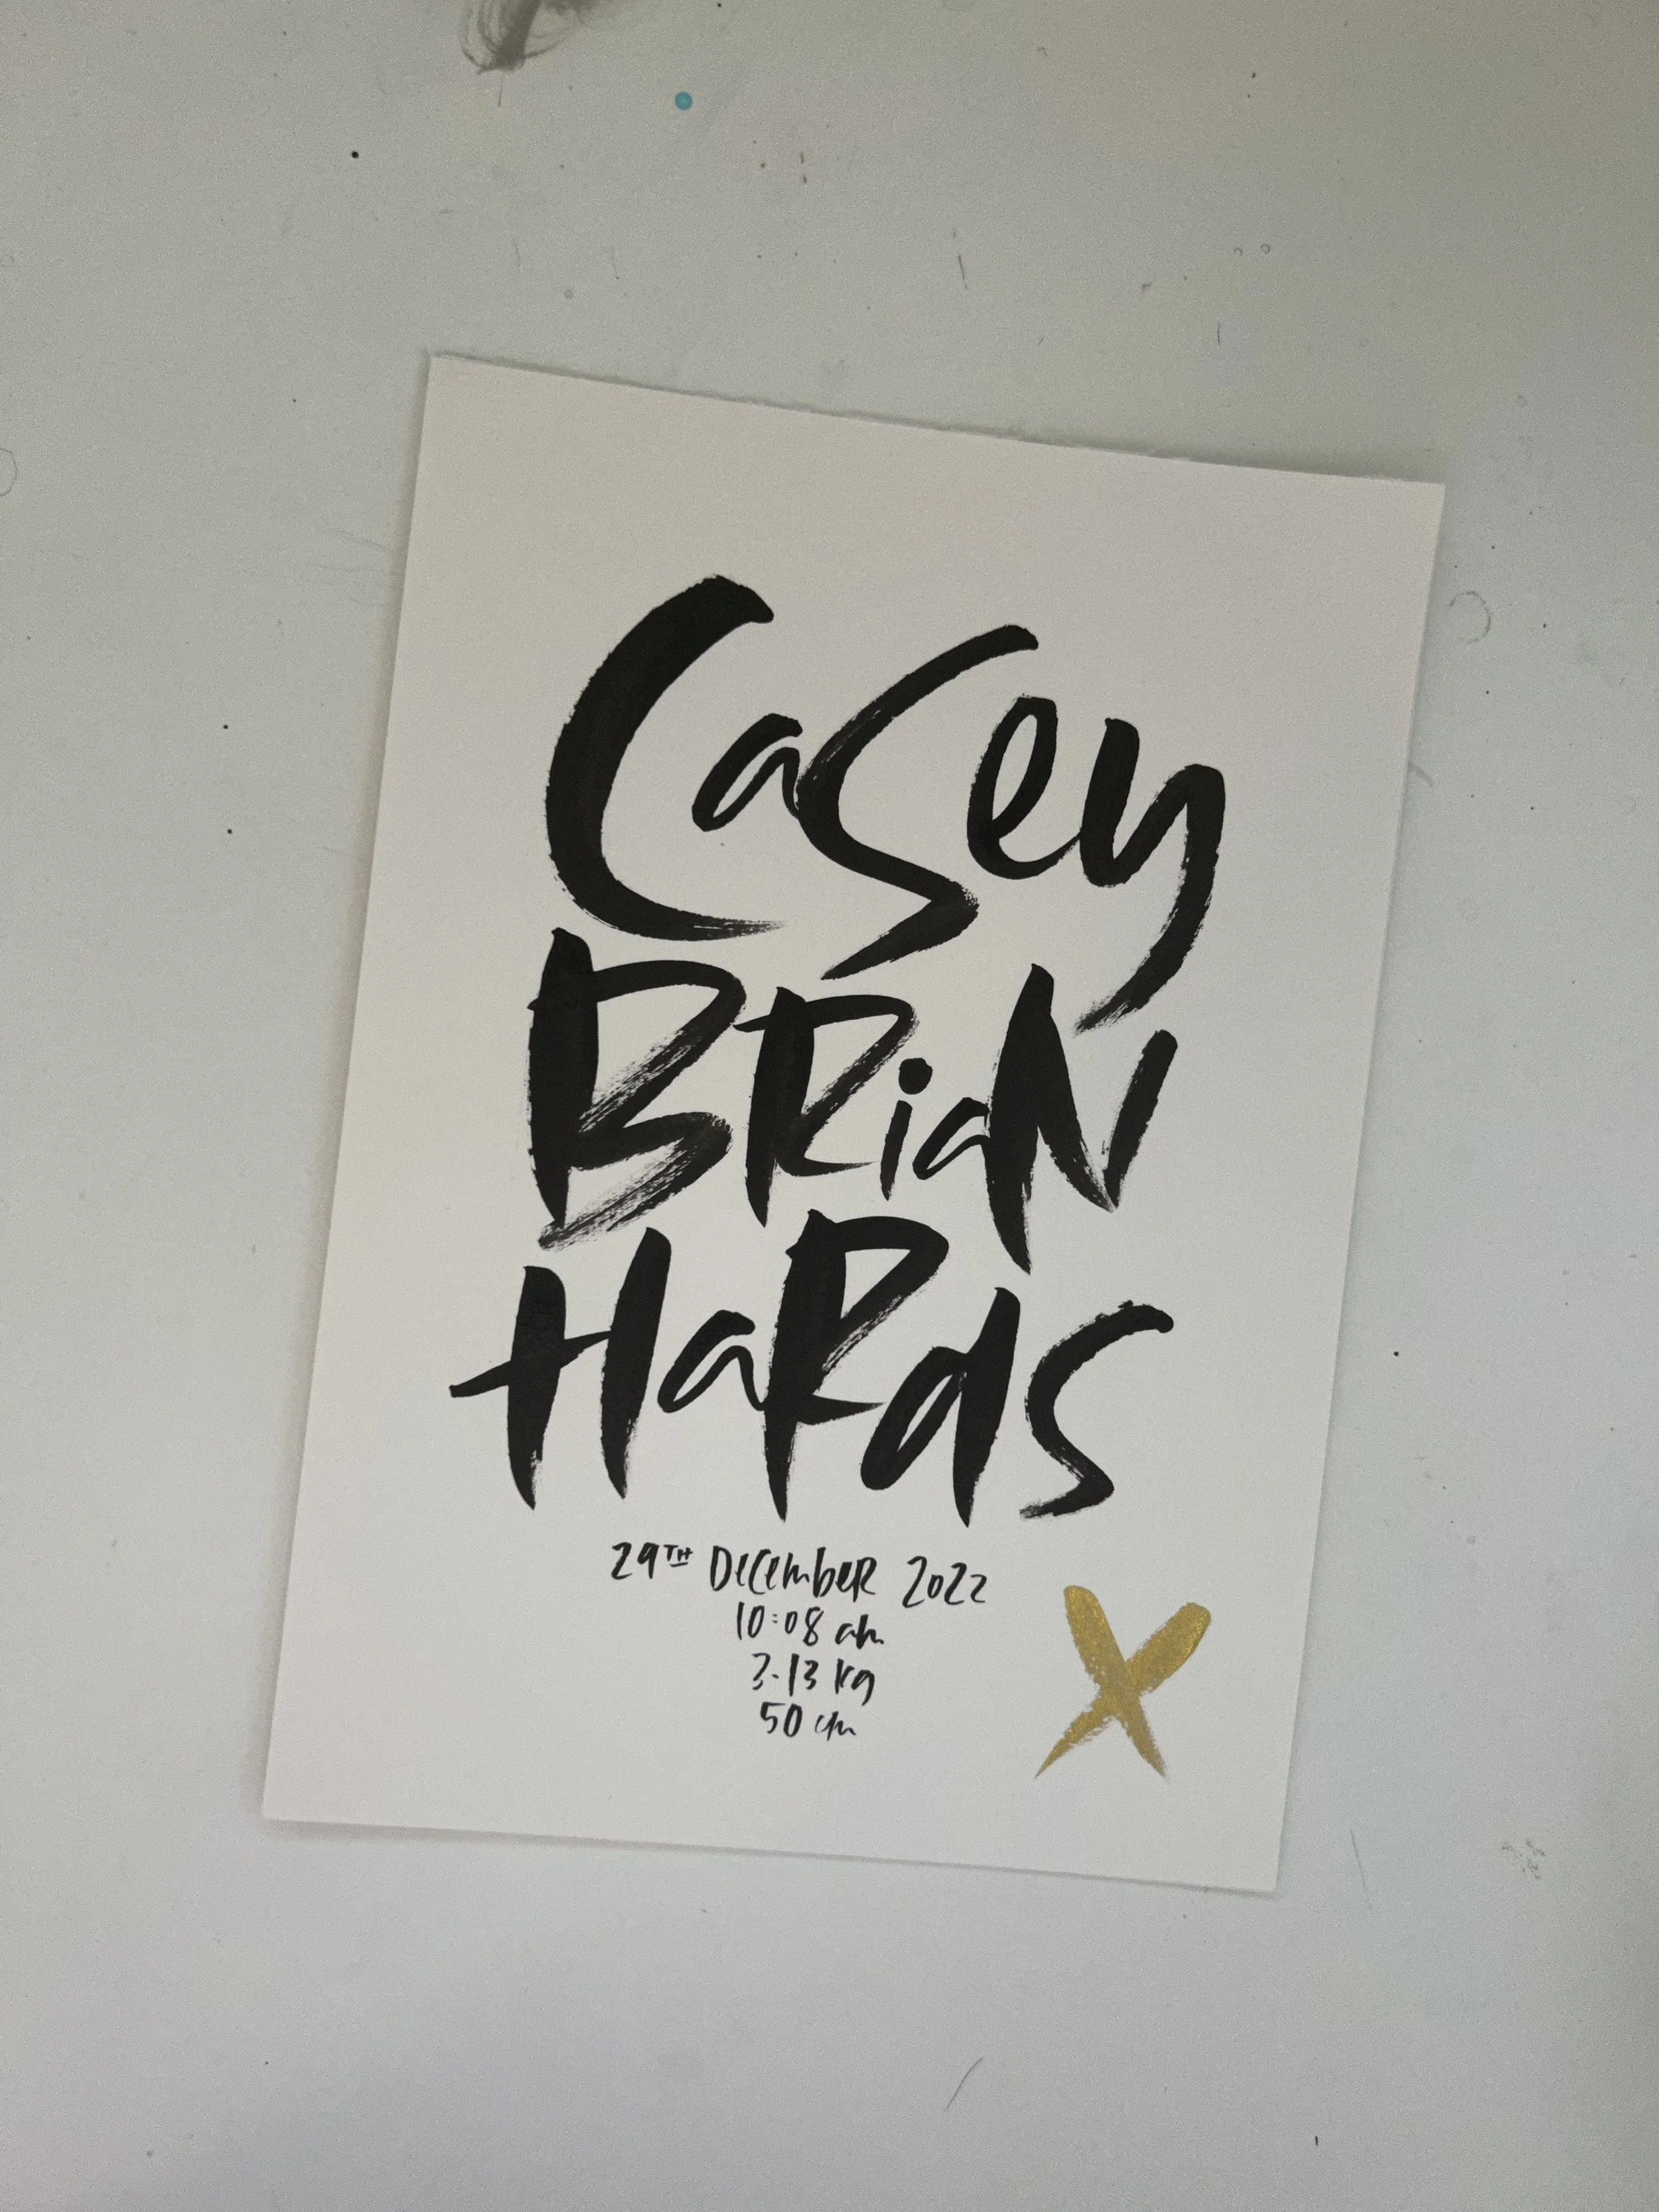 Casey
BRiaN
HaRds
29TH DeCembeR 2022
10:08 am
3.13 kg
50 cm
X